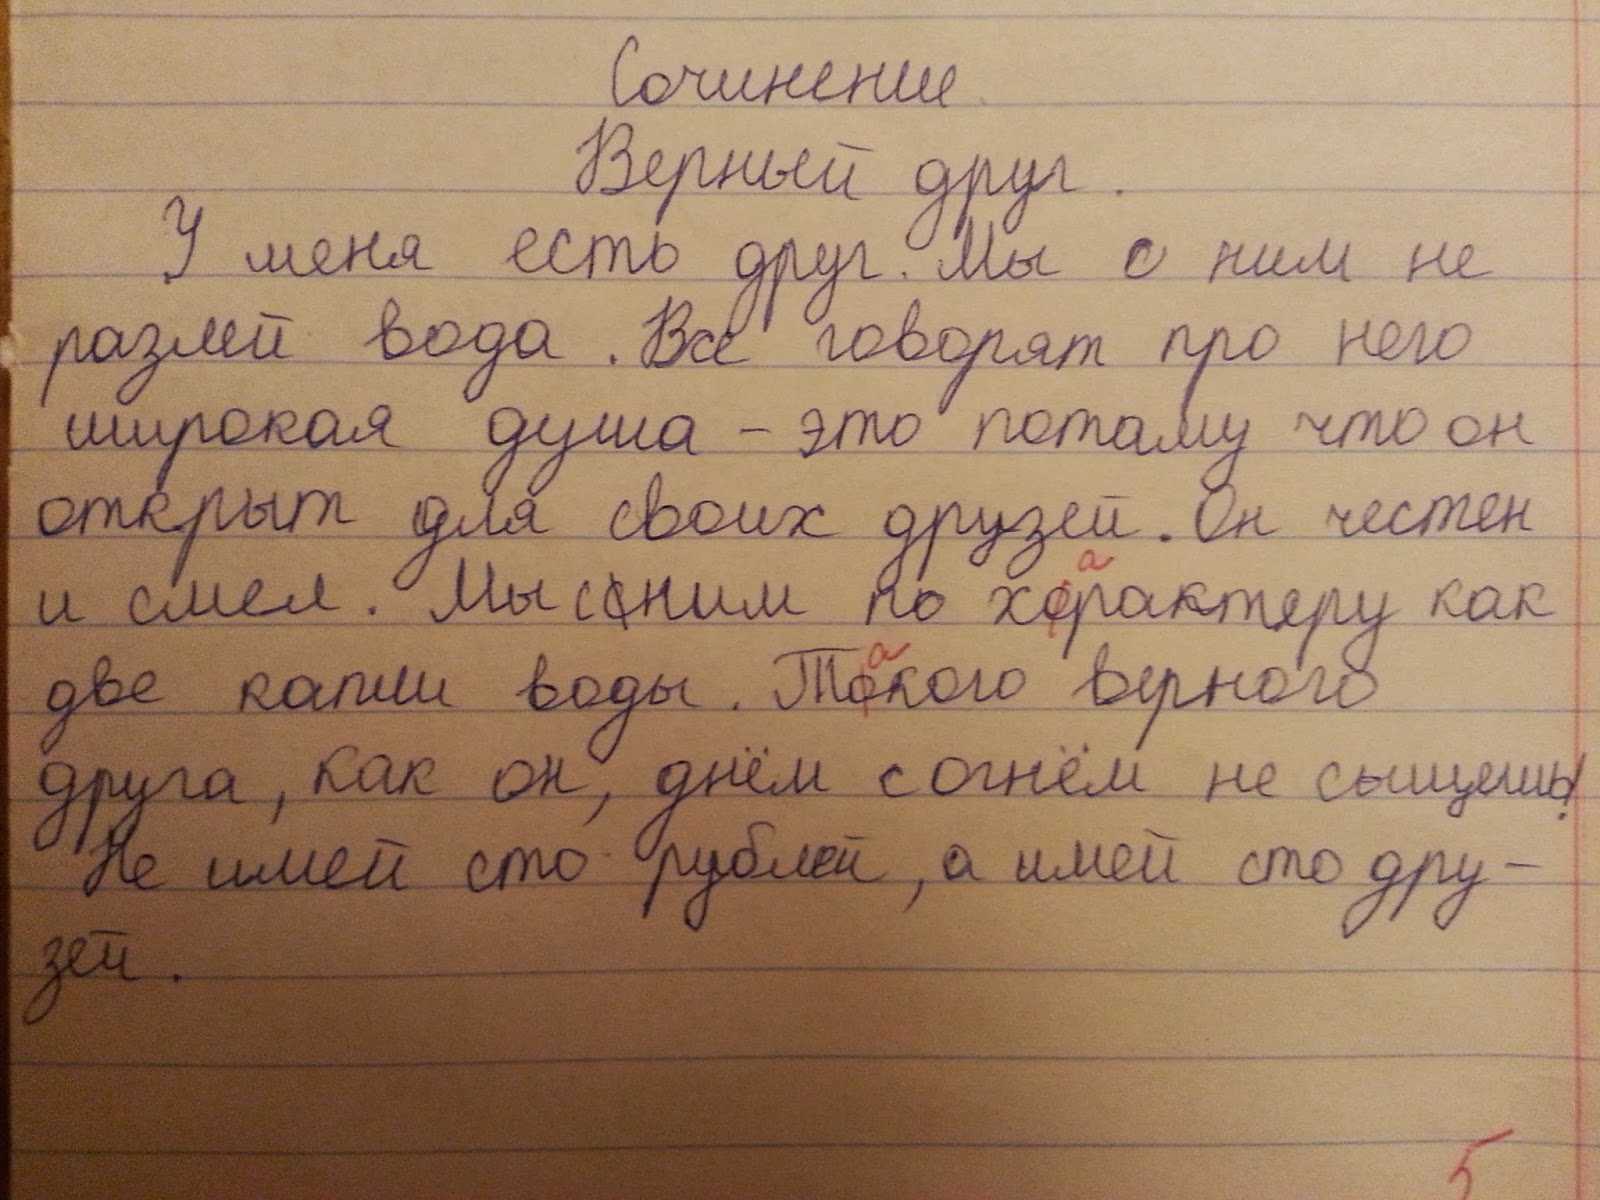 Сочинение.
Верный друг.
У меня есть друг. Мы с ним не
разлей вода. Все говорят про него
широкая душа - это потаму что он
открыт для своих друзей. Он честен
и смел. Мы с ним по характеру как
две капли воды. Такого верного
друга, как он, днём с огнём не сыщешь!
Не имей сто рублей, а имей сто дру-
зей.
5